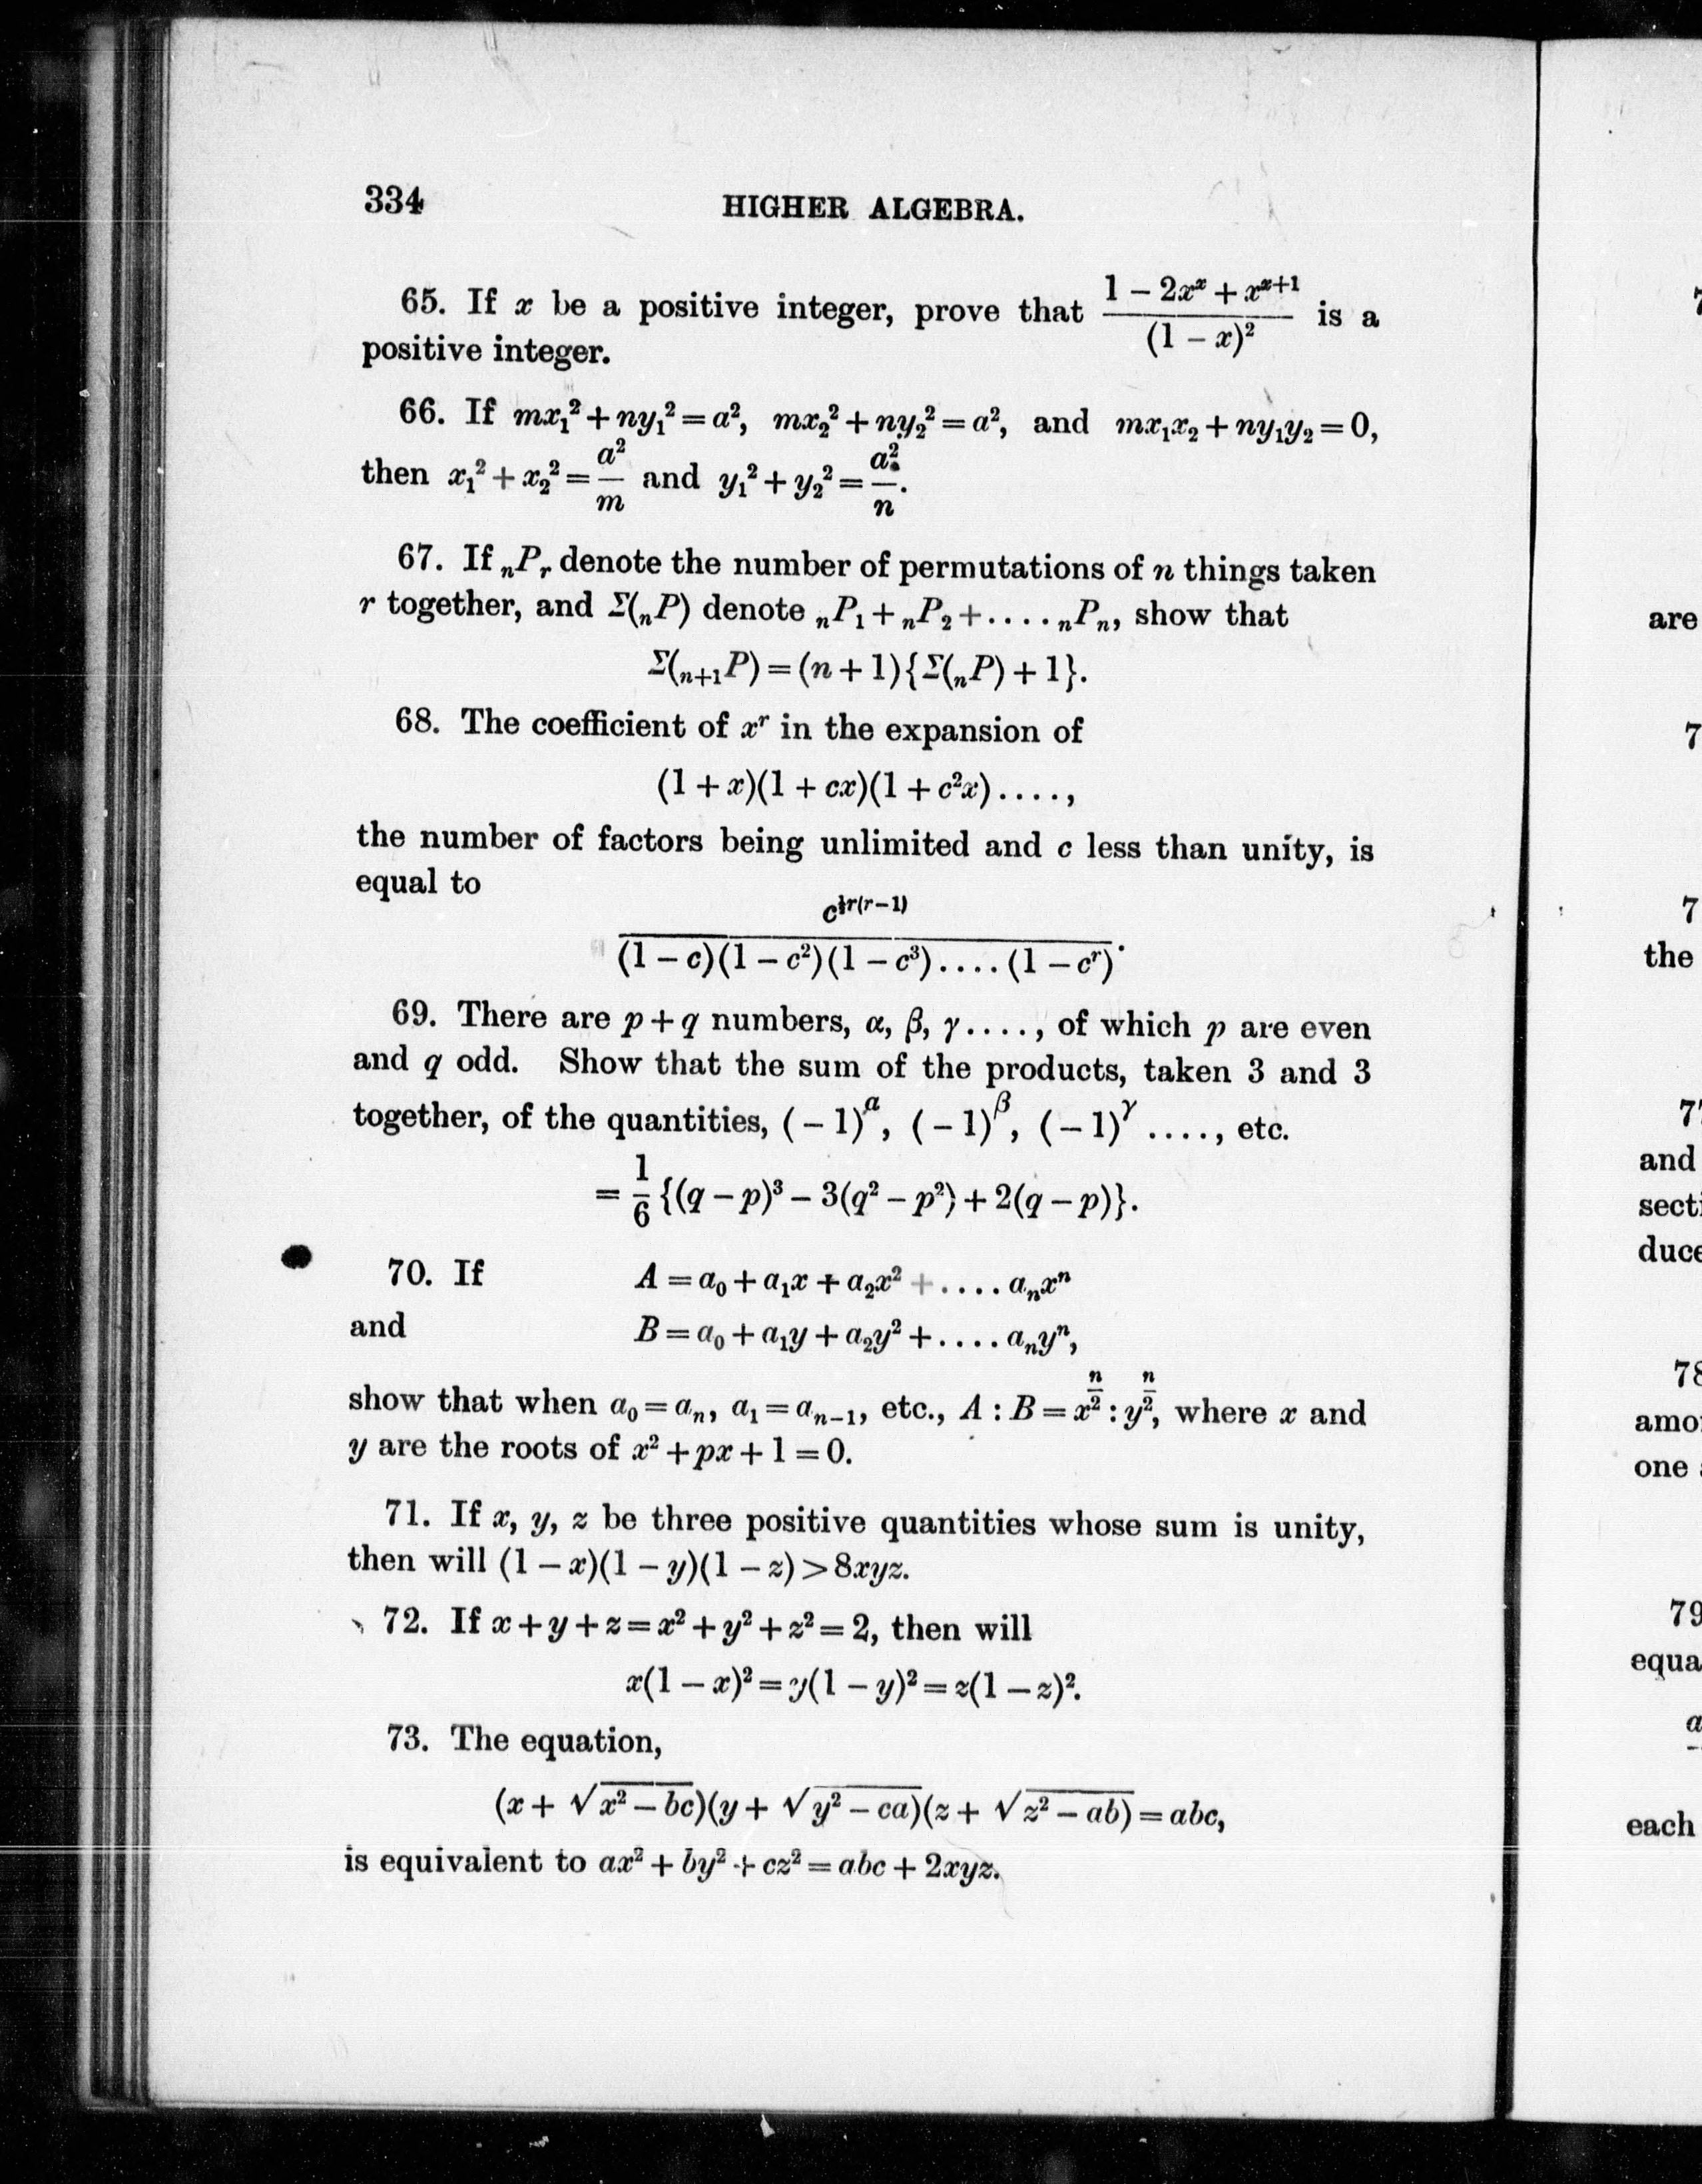 334 HIGHER ALGEBRA.
65. If x be a positive integer, prove that (1 − 2xˣ + xˣ⁺¹)/(1 − x)² is a
positive integer.
66. If mx₁² + ny₁² = a², mx₂² + ny₂² = a², and mx₁x₂ + ny₁y₂ = 0,
then x₁² + x₂² = a²/m and y₁² + y₂² = a²/n.
67. If ₙPᵣ denote the number of permutations of n things taken
r together, and Σ(ₙP) denote ₙP₁ + ₙP₂ + .... ₙPₙ, show that
Σ(ₙ₊₁P) = (n + 1){Σ(ₙP) + 1}.
68. The coefficient of xʳ in the expansion of
(1 + x)(1 + cx)(1 + c²x)....,
the number of factors being unlimited and c less than unity, is
equal to
c^{½r(r−1)}
/ (1 − c)(1 − c²)(1 − c³)....(1 − cʳ).
69. There are p + q numbers, α, β, γ...., of which p are even
and q odd. Show that the sum of the products, taken 3 and 3
together, of the quantities, (−1)^α, (−1)^β, (−1)^γ ...., etc.
= 1/6 {(q − p)³ − 3(q² − p²) + 2(q − p)}.
70. If A = a₀ + a₁x + a₂x² + .... aₙxⁿ
and B = a₀ + a₁y + a₂y² + .... aₙyⁿ,
show that when a₀ = aₙ, a₁ = aₙ₋₁, etc., A : B = x^{n/2} : y^{n/2}, where x and
y are the roots of x² + px + 1 = 0.
71. If x, y, z be three positive quantities whose sum is unity,
then will (1 − x)(1 − y)(1 − z) > 8xyz.
72. If x + y + z = x² + y² + z² = 2, then will
x(1 − x)² = y(1 − y)² = z(1 − z)².
73. The equation,
(x + √(x² − bc))(y + √(y² − ca))(z + √(z² − ab)) = abc,
is equivalent to ax² + by² + cz² = abc + 2xyz.
are
the
and
one
79
each